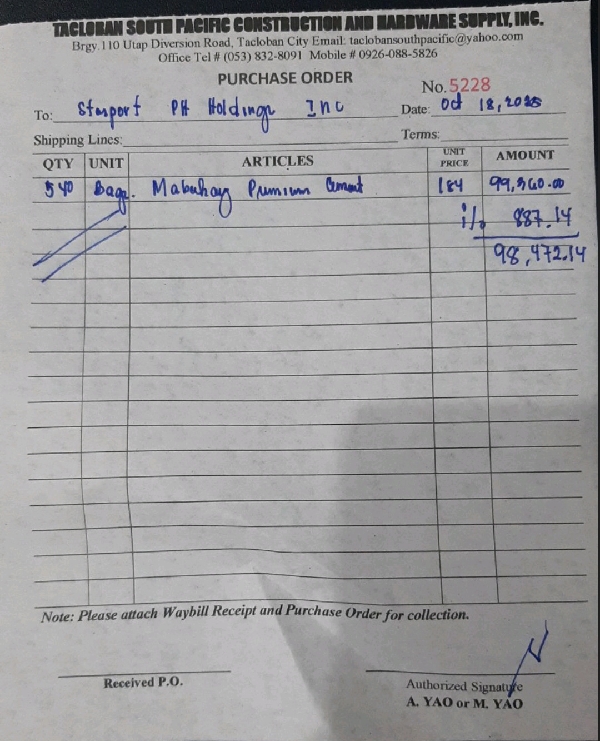 TACLOBAN SOUTH PACIFIC CONSTRUCTION AND HARDWARE SUPPLY, INC.
Brgy. 110 Utap Diversion Road, Tacloban City Email: taclobansouthpacific@yahoo.com
Office Tel # (053) 832-8091 Mobile # 0926-088-5826
PURCHASE ORDER
No. 5228
To: Starport PH Holdings Inc Date: Oct 18, 2025
Shipping Lines: Terms:
QTY UNIT ARTICLES UNIT PRICE AMOUNT
540 Bags. Mabuhay Premium Cement 184 99,360.00
1% 887.14
98,472.14
Note: Please attach Waybill Receipt and Purchase Order for collection.
Received P.O. Authorized Signature
A. YAO or M. YAO